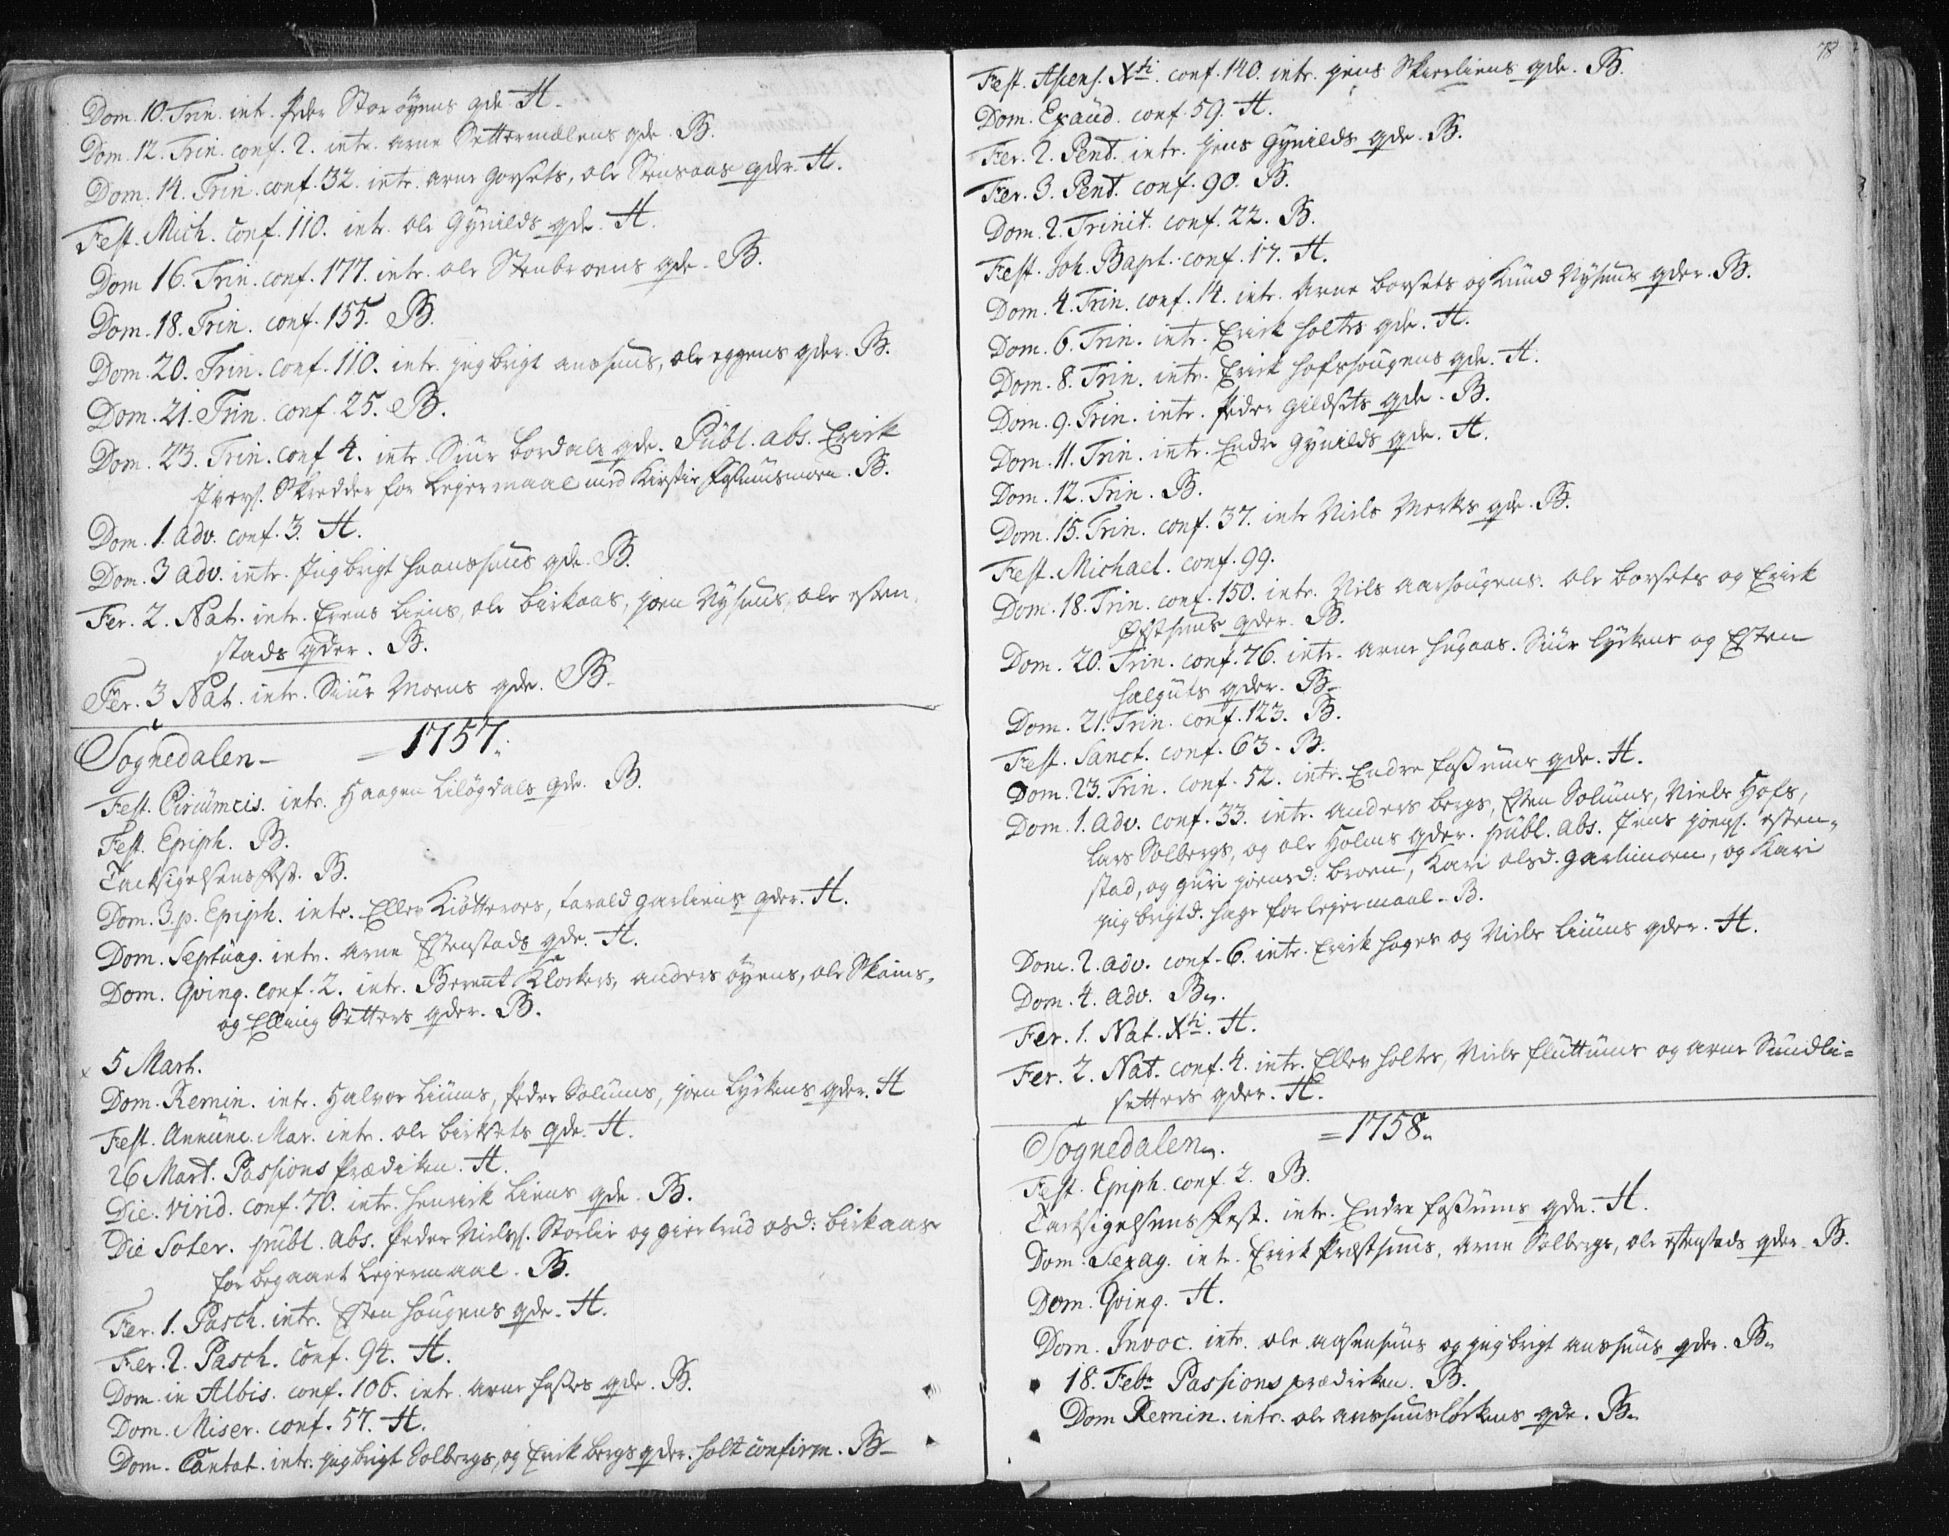 Dom. 10. Trin. int. Peder Storøyens qde. H.
Dom. 12. Trin. conf. 2. intr. Arne Settermælens qde. B.
Dom. 14. Trin. conf. 32. intr. Arne Gorsets, ole Stensaas qder. H.
Fest. Mich. conf. 110. intr. ole Gÿnilds qde. H.
Dom 16. Trin. conf. 177. intr. ole Stenbroens qde. B.
Dom. 18. Trin. conf. 155. B.
Dom. 20. Trin. conf. 110. intr. jngbrigt aushuus, ole eggens qder. B.
Dom. 21. Trin. conf. 25. B.
Dom. 23. Trin. conf 4. intr. Siur bordals qde. Publ. abs. Erick
Ivers. Skredder for Legermaal med Kirstie B.
Dom. 1. Adv. conf. 3. H.
Dom. 3 Adv. intr. Jngbrigt haanshuus qde. B.
Fer. 2. Nat. intr. Liens, ole birkaas, joen Nÿhuus, ole esten-
stads qder. B.
Fer. 3 Nat. intr. Siur Moens qde. B.
Sognedalen - = 1757.
Fest. Circumcis. intr. Haagen Liløgdals qde. B.
Fest. Epiph. B.
Tacksigelsens Fest. B.
Dom. 3. p. Epiph. intr. Eller Kiøtteroes, tarald garliens qder. H.
Dom. Septuag. intr. Arne Estenstads qde. H.
Dom. Qving. conf. 2. intr. Berent Klockers, anders øyens, ole Skams,
og Elling Setters qder. B.
5 Mart.
Dom. Remin. intr. Halvor Liums, Peder Solums, joen Lÿckens qder. H
Fest. Annunc. Mar. intr. ole birksets qde. H.
26 Mart. Passions Prædiken. H.
Die. virid. conf. 70. intr. Henrick Liens qde. B.
Die Soter. publ. abs. Peder Nielss. Storlie og giertrud olsd: birkaas
for begaaet Legermaal. B.
Fer. 1. Pasch. intr. Esten hougens qde. H.
Fer. 2. Pasch. conf. 94. H.
Dom. in Albis. conf. 106. intr. Arne qde. B.
Dom. Miser. conf. 57. H.
Dom. Cantat. intr. jngbrigt Solbergs, og Erick bergs qder. holt confirm. B.
78
Fest. Ascens. Xti. conf. 140. intr. jens Skierliens qde. B.
Dom. Exaud. conf. 59. H.
Fer. 2. Pent. intr. jens Gÿnilds qde. B.
Fer. 3. Pent. conf. 90. B.
Dom. 2. Trinit. conf. 22. B.
Fest. Joh. Bapt. conf. 17. H.
Dom. 4. Trin. conf. 14. intr. Arne borsets og Knud Nÿhuus qder. B.
Dom. 6. Trin. intr. Erick holtes qde. H.
Dom. 8. Trin. intr. Erick hofshougens qde. H.
Dom. 9. Trin. intr. Peder Gildsets qde. B.
Dom. 11. Trin. intr. Endre Gÿnilds qde. H.
Dom. 12. Trin. B.
Dom. 15. Trin. conf. 37. intr Niels Merkes qde. B.
Fest. Michael. conf. 99.
Dom. 18. Trin. conf. 150. intr. Niels aarhougens. ole borsets og Erick
qder. B.
Dom. 20. Trin. conf. 76. intr. Arne hugaas. Siur Lÿckens og Esten
halguts qder. B.
Dom. 21. Trin. conf. 123. B.
Fest. Sanct. conf. 63. B.
Dom. 23. Trin. conf. 52. intr. Endre foßums qde. H.
Dom. 1. Adv. conf. 33. intr. Anders bergs, Esten Solums, Niels Hofs,
Lars Solbergs, og ole Holms qder. publ. abs. Jens joens. esten-
stad, og guri joensd: broen, Kari olsd. garlimoen, og Kari
jngbrigtsd. hage for legermaal. B.
Dom. 2. adv. conf. 6. intr. Erick hages og Niels Liums qder. H.
Dom. 4. adv. B.
Fer. 1. Nat. Xti. H.
Fer. 2. Nat. conf. 4. intr. Eller holtes, Niels fluttums og Arne Sundli=
setters qder. H.
Sognedalen. = 1758.
Fest. Epiph. conf 2. B.
Tacksigelsens Fest. intr. Endre foßums qde. H.
Dom. Sexag. intr. Erick Præsthuus, Arne Solbergs, ole estenstads qder. B.
Dom. Qving. H.
Dom. Invoc. intr. ole aasenhuus og jngbrigt aushuus qder. B.
18. Febr. Passions prædicken. B.
Dom Remin. intr. ole aushuusløckens qde. B.